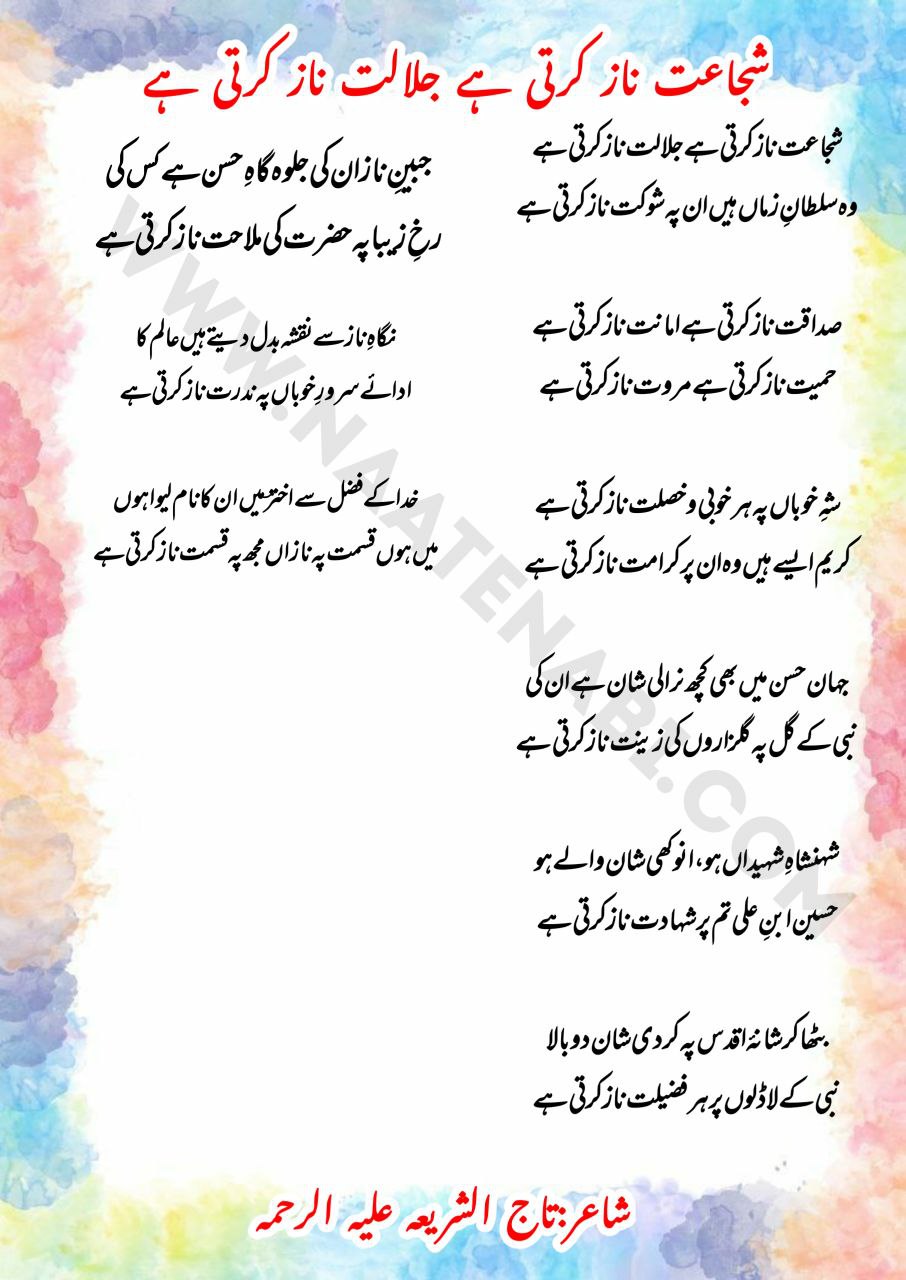 شجاعت ناز کرتی ہے جلالت ناز کرتی ہے
شجاعت ناز کرتی ہے جلالت ناز کرتی ہے
وہ سلطانِ زماں ہیں ان پہ شوکت ناز کرتی ہے
صداقت ناز کرتی ہے امانت ناز کرتی ہے
حمیت ناز کرتی ہے مروت ناز کرتی ہے
شہِ خوباں پہ ہر خوبی و خصلت ناز کرتی ہے
کریم ایسے ہیں وہ ان پر کرامت ناز کرتی ہے
جہان حسن میں بھی کچھ نرالی شان ہے ان کی
نبی کے گل پہ گلزاروں کی زینت ناز کرتی ہے
شہنشاہِ شہیداں ہو، انوکھی شان والے ہو
حسین ابنِ علی تم پر شہادت ناز کرتی ہے
بٹھا کر شانۂ اقدس پہ کردی شان دوبالا
نبی کے لاڈلوں پر ہر فضیلت ناز کرتی ہے
جبینِ ناز ان کی جلوہ گاہِ حسن ہے کس کی
رخِ زیبا پہ حضرت کی ملاحت ناز کرتی ہے
نگاہِ ناز سے نقشہ بدل دیتے ہیں عالم کا
ادائے سرورِ خوباں پہ ندرت ناز کرتی ہے
خدا کے فضل سے اخترؔ میں ان کا نام لیوا ہوں
میں ہوں قسمت پہ نازاں مجھ پہ قسمت ناز کرتی ہے
شاعر:تاج الشریعہ علیہ الرحمہ
WWW.NAATENABI.COM